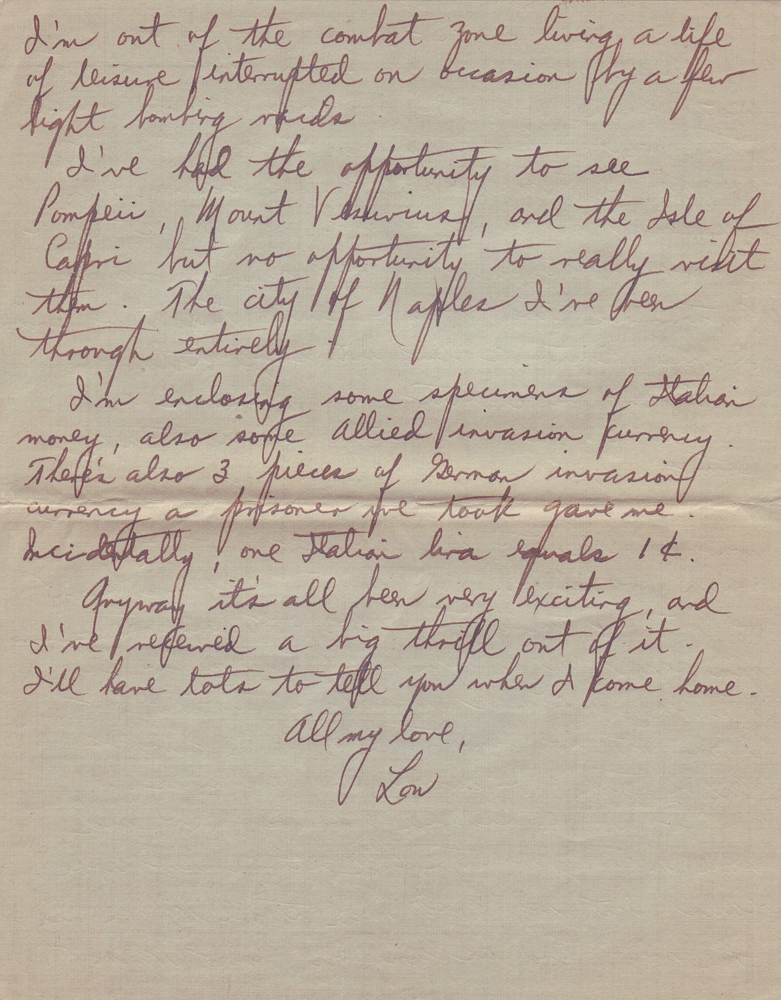 I'm out of the combat zone living a life
of leisure interrupted on occasion by a few
light bombing raids
I've had the opportunity to see
Pompeii, Mount Vesuvius, and the Isle of
Capri but no opportunity to really visit
them. The city of Naples I've been
through entirely.
I'm enclosing some specimens of Italian
money, also some Allied invasion currency.
There's also 3 pieces of German invasion
currency a prisoner we took gave me.
Incidentally, one Italian lira equals 1¢.
Anyway it's all been very exciting, and
I've received a big thrill out of it.
I'll have lots to tell you when I come home.
All my love,
Lou